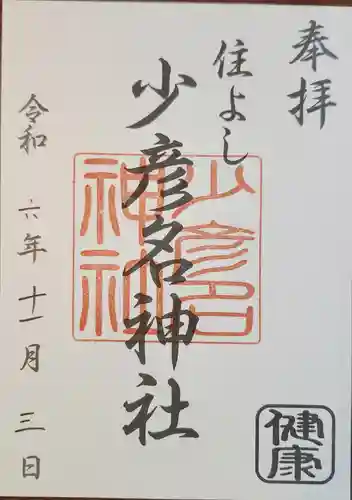 奉拝
住よし
少彦名神社
少彦名
神社
令和 六年 十一月 三日
健康